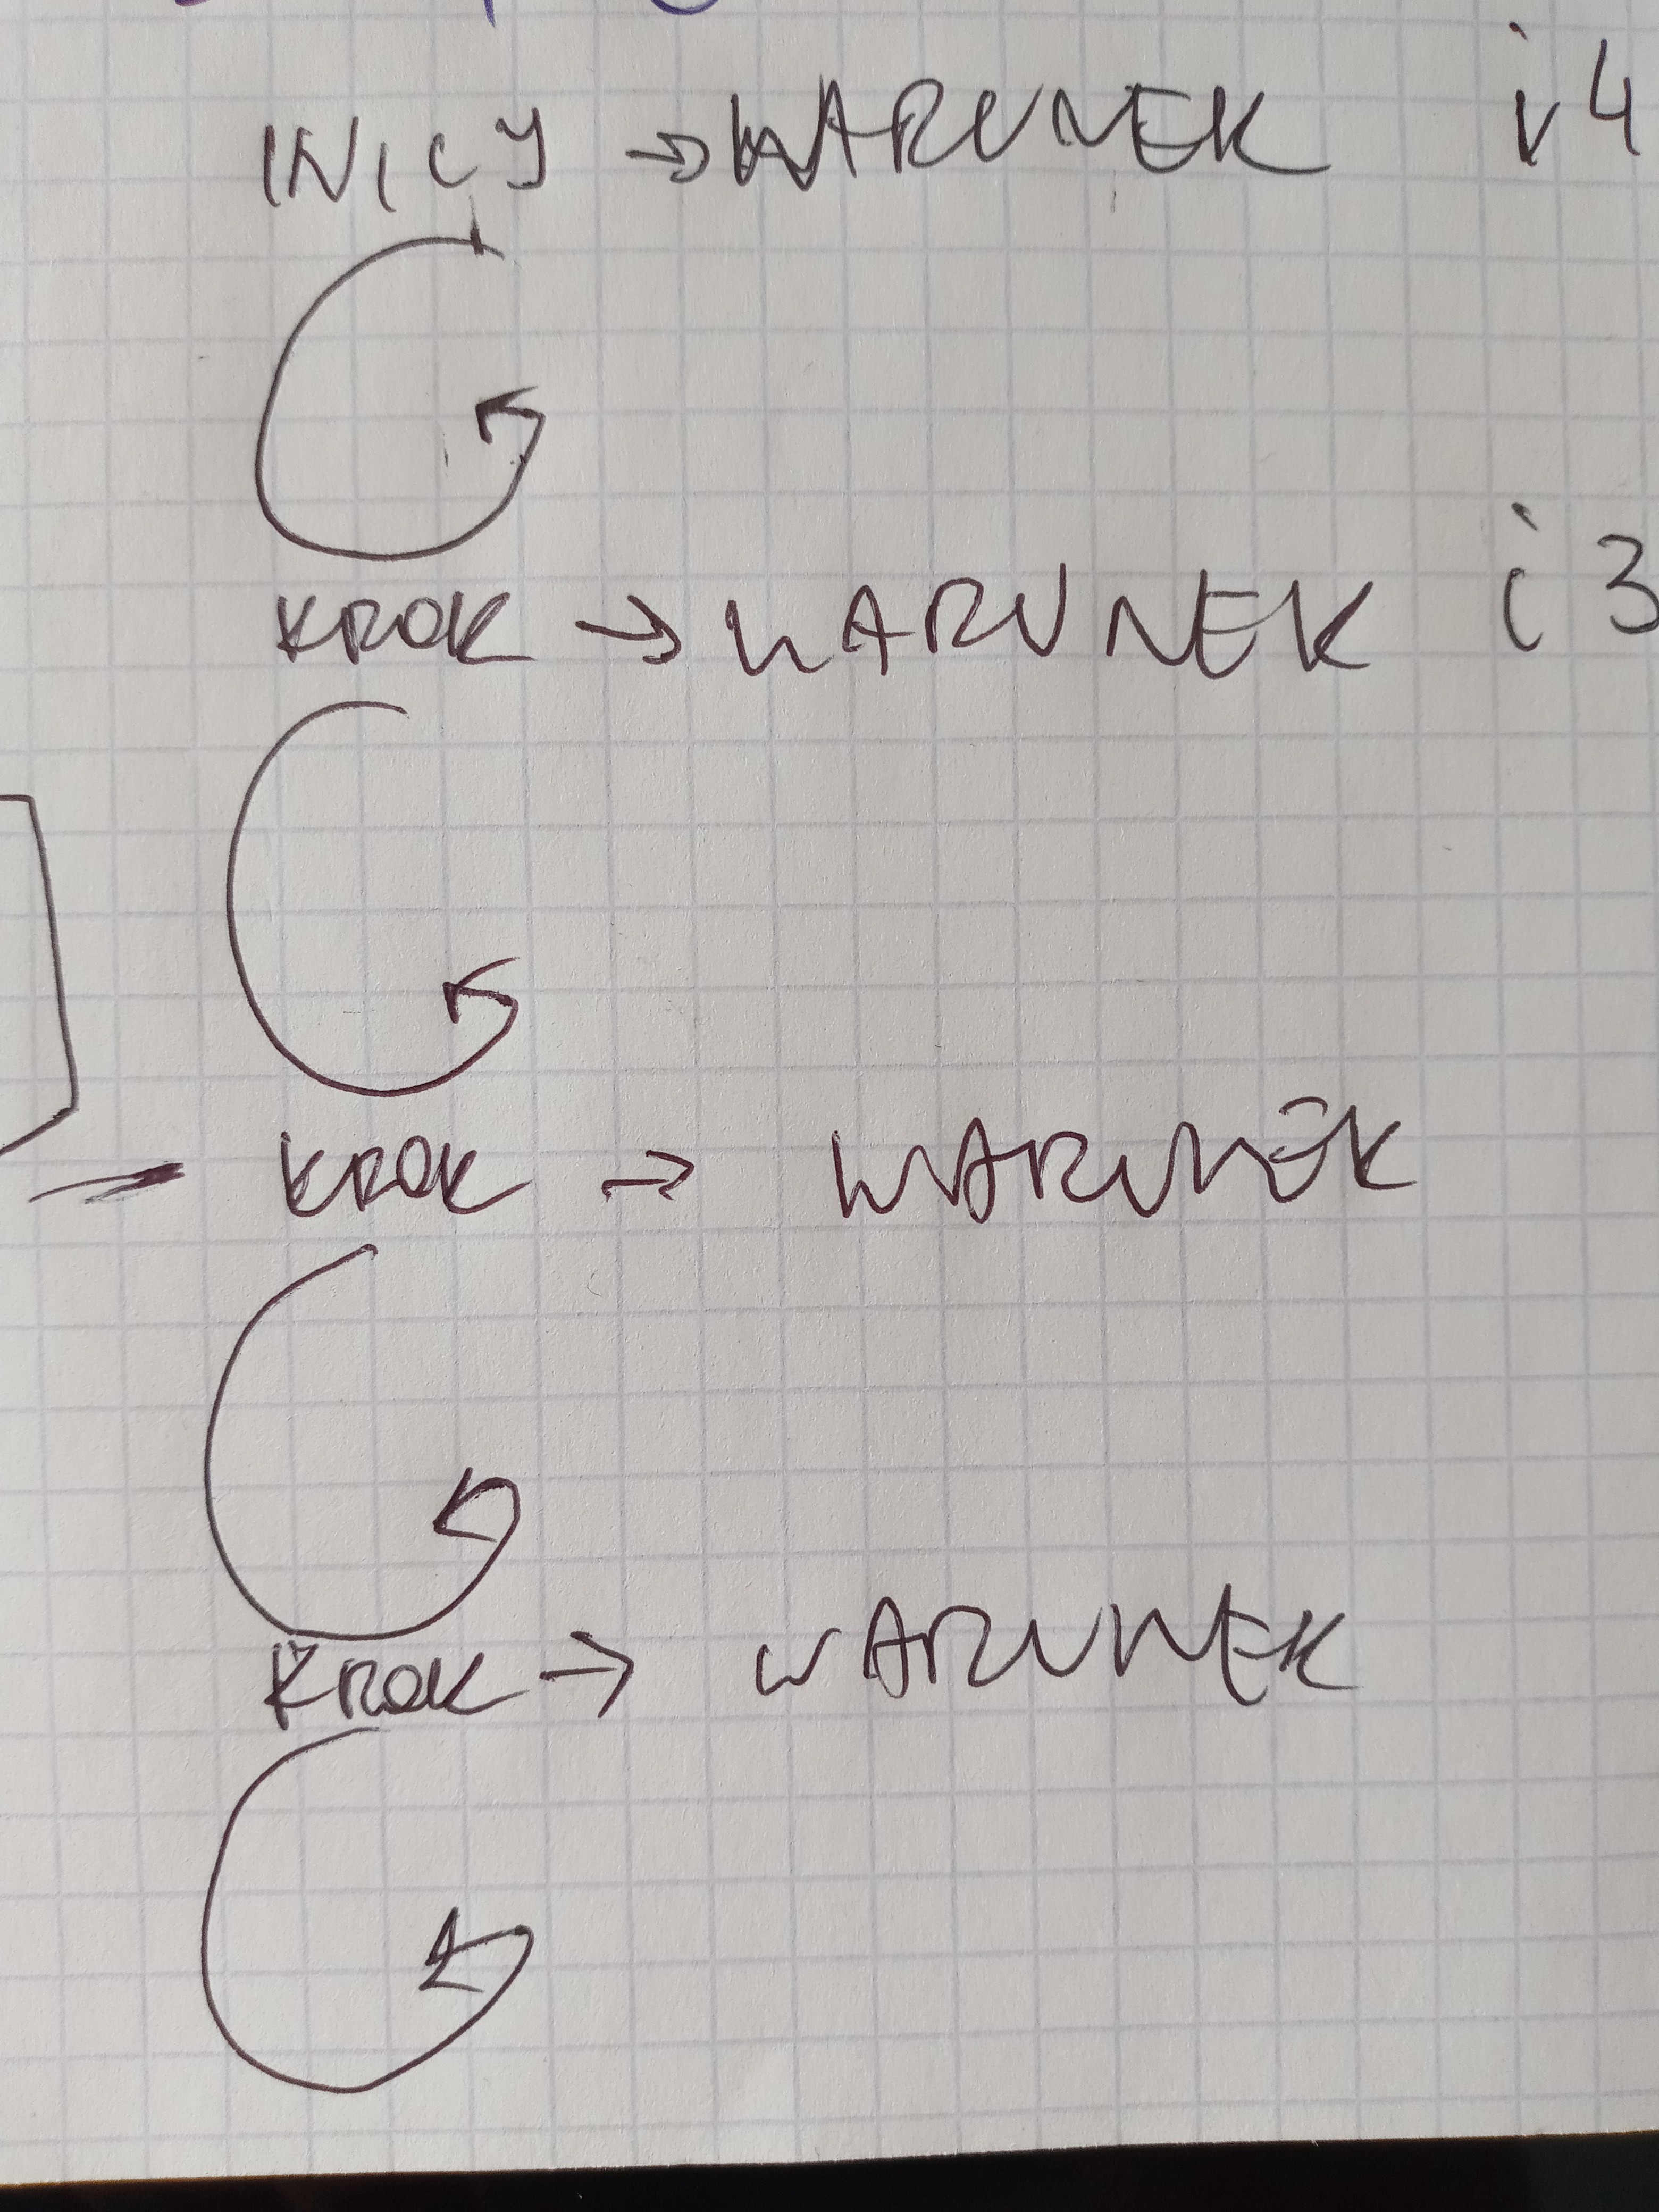 INICJ → WARUNEK i 4
KROK → WARUNEK i 3
KROK → WARUNEK
KROK → WARUNEK